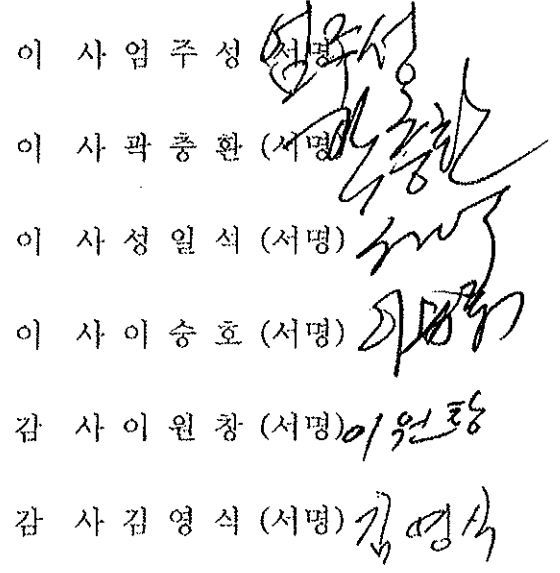 이 사 엄 주 성 (서명) 엄주성
이 사 곽 충 환 (서명) 곽충환
이 사 성 일 석 (서명)
이 사 이 승 호 (서명)
감 사 이 원 창 (서명) 이원창
감 사 김 영 식 (서명) 김영식